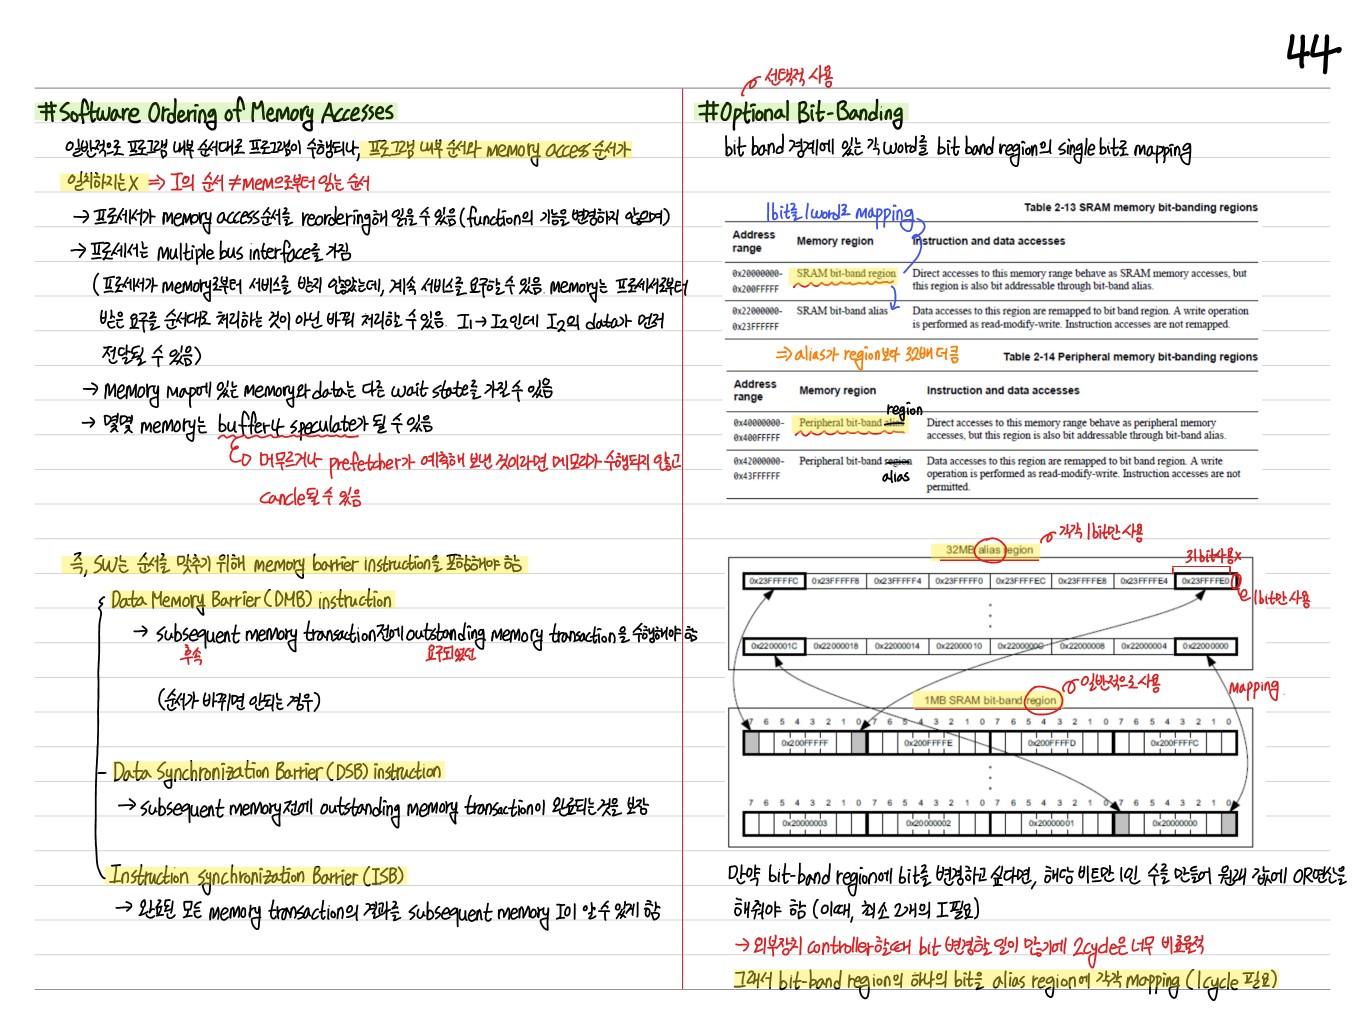 44
#Software Ordering of Memory Accesses
일반적으로 프로그램 내부 순서대로 프로그램이 수행되나, 프로그램 내부 순서와 memory access 순서가
일치하지는 X ⇒ I의 순서 ≠ mem으로부터 읽는 순서
→ 프로세서가 memory access 순서를 reordering해 읽을 수 있음 (function의 기능을 변경하지 않으며)
→ 프로세서는 multiple bus interface를 가짐
(프로세서가 memory로부터 서비스를 받지 않았는데, 계속 서비스를 요구할 수 있음. memory는 프로세서로부터
받은 요구를 순서대로 처리하는 것이 아닌 바꿔 처리할 수 있음. I₁→I₂인데 I₂의 data가 먼저
전달될 수 있음)
→ Memory map에 있는 memory와 data는 다른 wait state를 가질 수 있음
→ 몇몇 memory는 buffer나 speculate가 될 수 있음
머무르거나 prefetcher가 예측해 보낸 것이라면 메모리가 수행되지 않고
cancle될 수 있음
즉, SW는 순서를 맞추기 위해 memory barrier instruction을 포함해야 함
Data Memory Barrier (DMB) instruction
→ subsequent memory transaction전에 outstanding memory transaction을 수행해야 함
후속
요구되었던
(순서가 바뀌면 안되는 경우)
Data Synchronization Barrier (DSB) instruction
→ subsequent memory전에 outstanding memory transaction이 완료되는 것을 보장
Instruction synchronization Barrier (ISB)
→ 완료된 모든 memory transaction의 결과를 subsequent memory I이 알 수 있게 함
선택적 사용
#Optional Bit-Banding
bit band 경계에 있는 각 word를 bit band region의 single bit로 mapping
Table 2-13 SRAM memory bit-banding regions
1bit를 1word로 mapping
Address range Memory region Instruction and data accesses
0x20000000-0x200FFFFF SRAM bit-band region Direct accesses to this memory range behave as SRAM memory accesses, but
this region is also bit addressable through bit-band alias.
0x22000000-0x23FFFFFF SRAM bit-band alias Data accesses to this region are remapped to bit band region. A write operation
is performed as read-modify-write. Instruction accesses are not remapped.
⇒ alias가 region보다 32배 더 큼
Table 2-14 Peripheral memory bit-banding regions
Address range Memory region Instruction and data accesses
region
0x40000000-0x400FFFFF Peripheral bit-band alias Direct accesses to this memory range behave as peripheral memory
accesses, but this region is also bit addressable through bit-band alias.
0x42000000-0x43FFFFFF Peripheral bit-band region Data accesses to this region are remapped to bit band region. A write
operation is performed as read-modify-write. Instruction accesses are not
permitted.
alias
각각 1bit만 사용
32MB alias region
31bit사용x
0x23FFFFFC 0x23FFFFF8 0x23FFFFF4 0x23FFFFF0 0x23FFFFEC 0x23FFFFE8 0x23FFFFE4 0x23FFFFE0
1bit만 사용
0x2200001C 0x22000018 0x22000014 0x22000010 0x2200000C 0x22000008 0x22000004 0x22000000
일반적으로 사용
mapping
1MB SRAM bit-band region
7 6 5 4 3 2 1 0 7 6 5 4 3 2 1 0 7 6 5 4 3 2 1 0 7 6 5 4 3 2 1 0
0x200FFFFF 0x200FFFFE 0x200FFFFD 0x200FFFFC
7 6 5 4 3 2 1 0 7 6 5 4 3 2 1 0 7 6 5 4 3 2 1 0 7 6 5 4 3 2 1 0
0x20000003 0x20000002 0x20000001 0x20000000
만약 bit-band region에 bit를 변경하고 싶다면, 해당 비트만 1인 수를 만들어 원래 값에 OR연산을
해줘야 함 (이때, 최소 2개의 I 필요)
→ 외부장치 controller할때 bit 변경할 일이 많기에 2cycle은 너무 비효율적
그래서 bit-band region의 하나의 bit을 alias region에 각각 mapping (1cycle 필요)